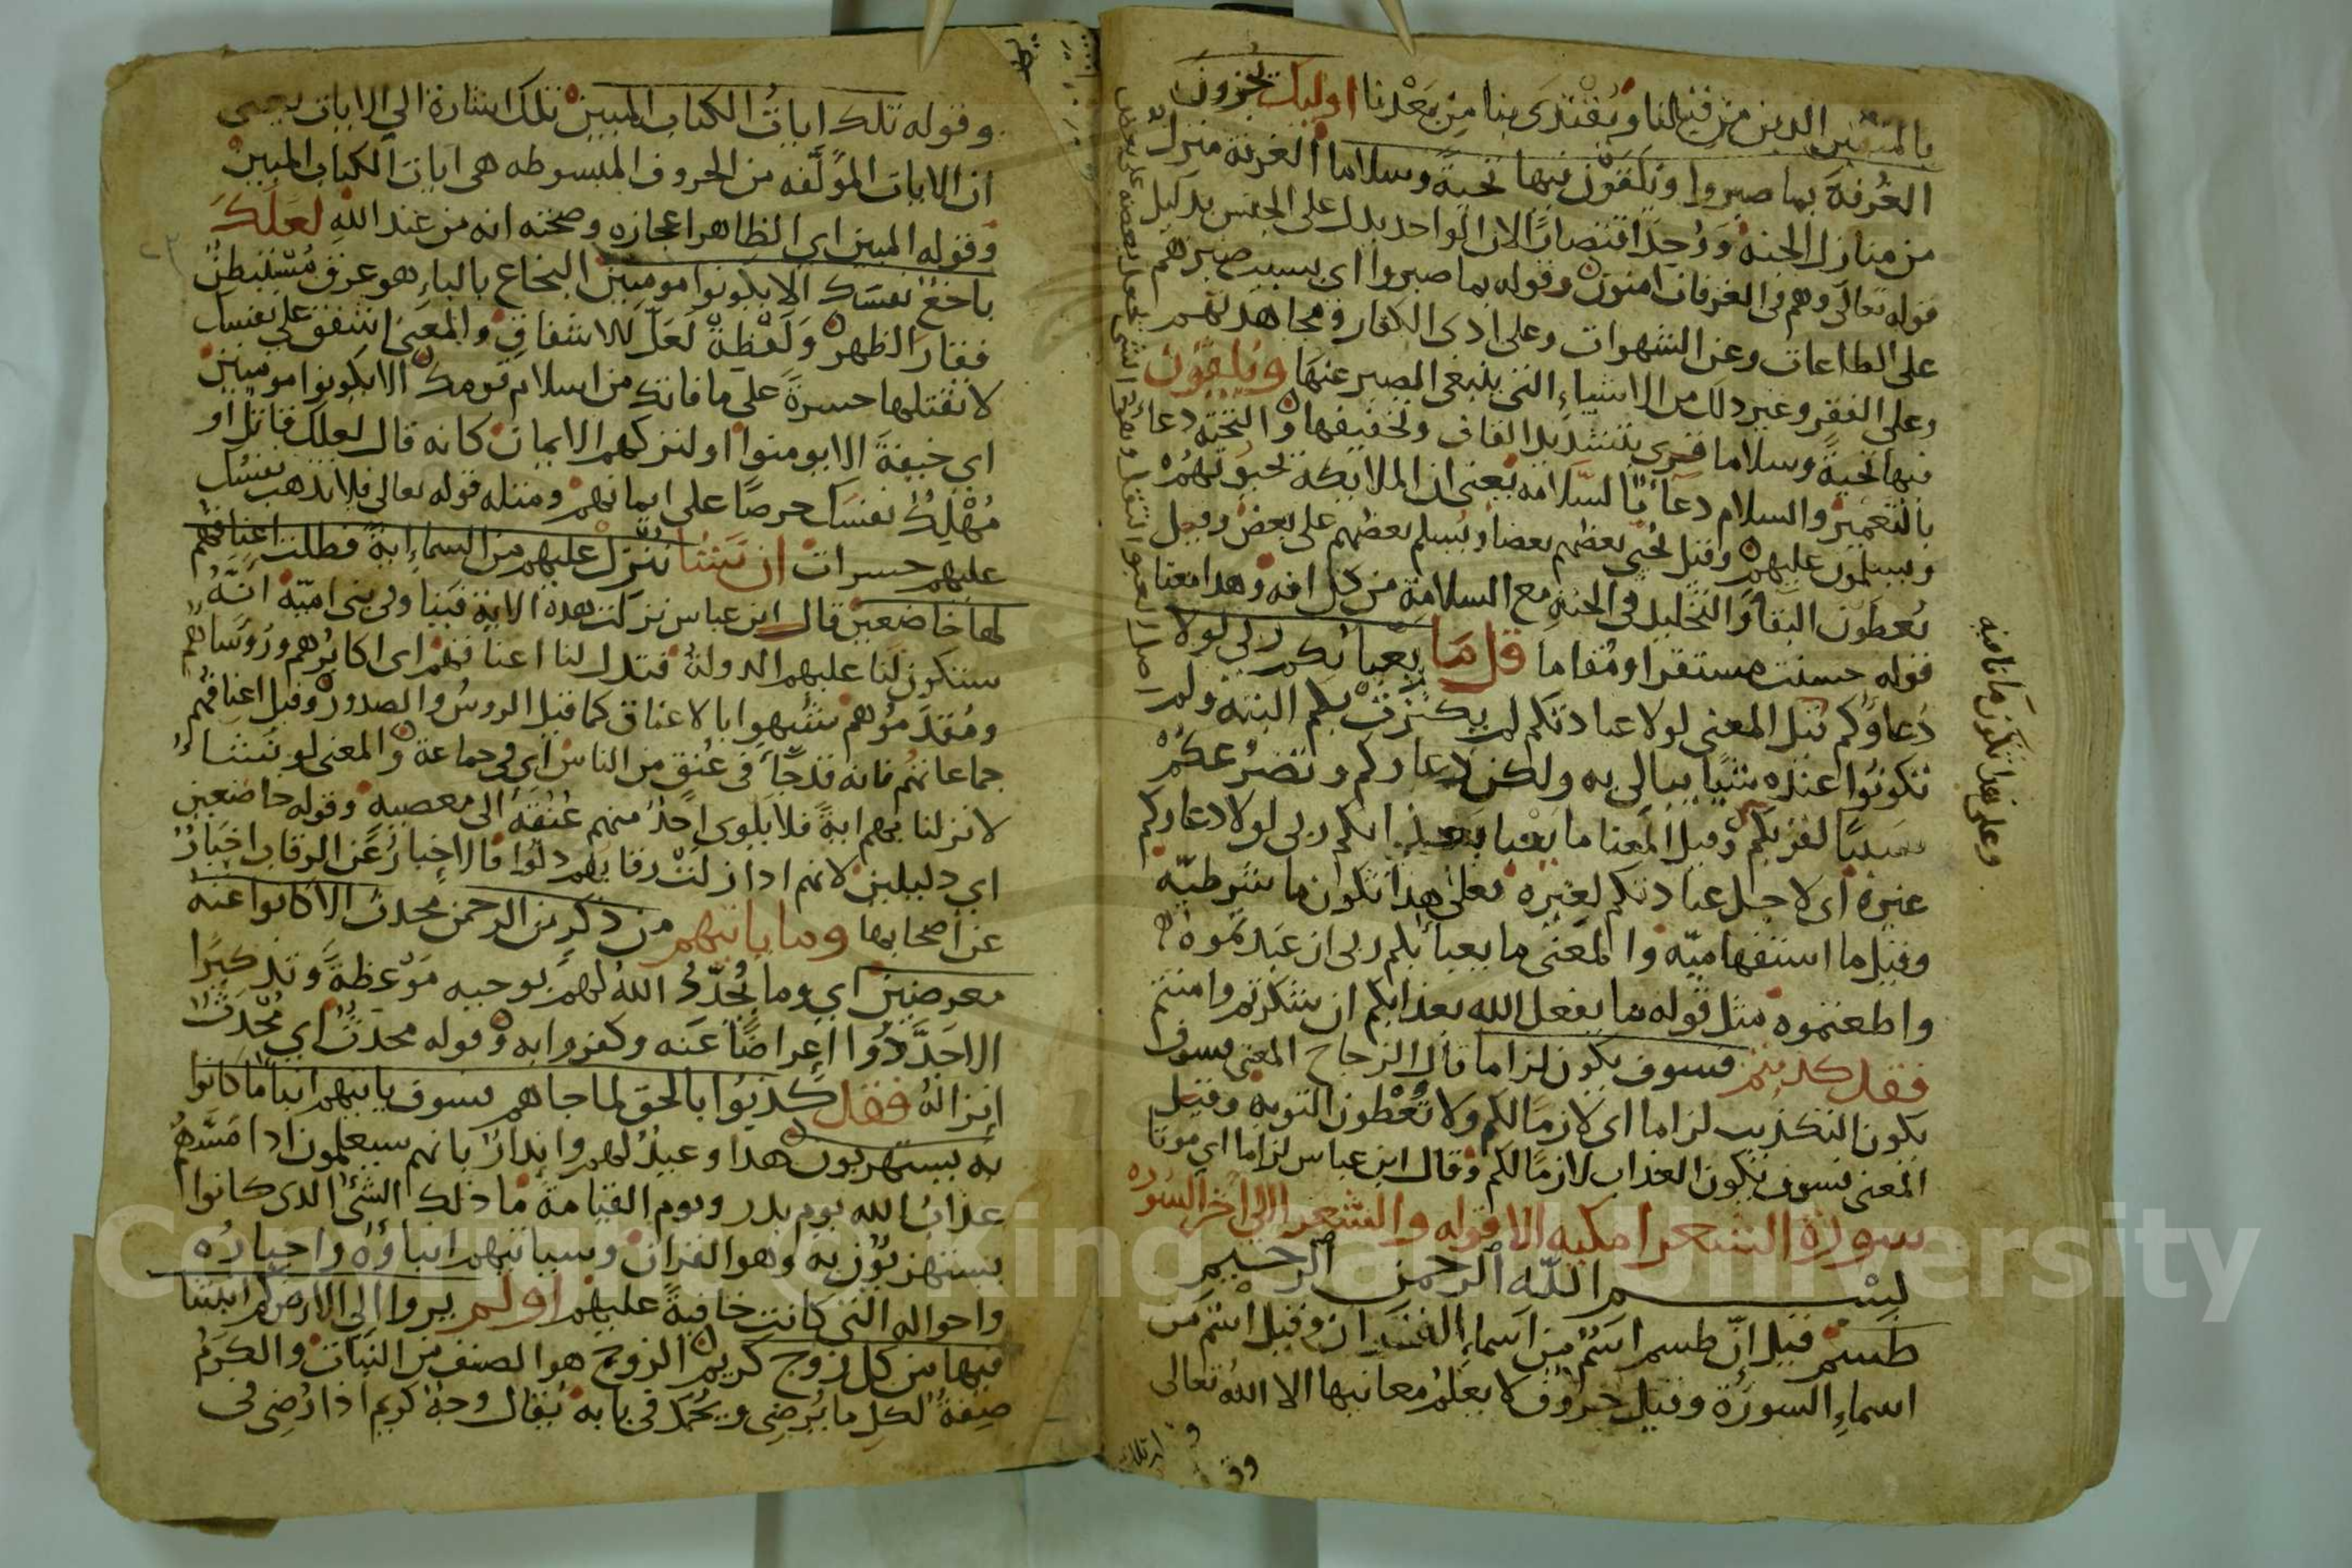 بالمتقين الذين من قبلنا ويقتدى بنا من بعدنا اوليك يجزون
الغرفة بما صبروا ويلقون فيها تحية وسلاما الغرفة منزل
من منازل الجنة ووحد اقتصارا لان الواحد يدل على الجنس بدليل
قوله تعالى وهم فى الغرفات امنون وقوله بما صبروا اي بسبب صبرهم
على الطاعات وعن الشهوات وعلى ادى الكفار ومجاهدتهم
وعلى الفقر وغير ذلك من الاشياء التى ينبغى الصبر عنها ويلقون
فيها تحية وسلاما قرى بتشديد القاف وتخفيفها والتحية دعاء
بالتعمير والسلام دعاء بالسلامة يعنى ان الملايكة تحيونهم
ويسلمون عليهم وقيل تحيى بعضهم بعضا ويسلم بعضهم على بعض وقيل
يعطون البقا والتخليد في الجنة مع السلامة من كل افه وهذا معنا
قوله حسنت مستقرا ومقاما قل ما يعبا بكم ربى لولا
دعاوكم قيل المعنى لولا عبادتكم لم يكترث بكم البتة ولم
تكونوا عنده شيا يبالى به ولكن دعاوكم وتضرعكم
سببا لقربكم وقيل المعنا ما يعبا بعذابكم ربى لولا دعاوكم
غيره اى لاجل عبادتكم لغيره فعلى هذا تكون ما شرطية
وقيل ما استفهامية والمعنى ما يعبا بكم ربى ان عبدتموه
واطعتموه مثل قوله ما يفعل الله بعذابكم ان شكرتم وامنتم
فقد كذبتم فسوف يكون لزاما قال الزجاج المعنى فسوف
يكون التكذيب لزاما اى لازما لكم ولا تعطون التوبة وقيل
المعنى فسوف يكون العذاب لازما لكم وقال ابن عباس لزاما اي موتا
سورة الشعرا مكية الا قوله والشعرا الى اخر السوره
بسم الله الرحمن الرحيم
طسم قيل ان طسم اسم من اسماء القران وقيل اسم من
اسماء السورة وقيل حروف لا يعلم معانيها الا الله تعالى
وعلى هذا تكون ما نافيه
وقوله تلك ايات الكتاب المبين تلك اشارة الى الايات يعنى
ان الايات المولفه من الحروف المبسوطه هى ايات الكتاب المبين
وقوله المبين اى الظاهر اعجازه وصحته انه من عند الله لعلك
باخع نفسك الا يكونوا مومنين البخاع بالباء هو عرق مستبطن
فقار الظهر ولفظة لعل للاشفاق والمعنى اشفق على نفسك
لا تقتلها حسرة على ما فاتك من اسلام قومك الا يكونوا مومنين
اى خيفة الا يومنوا او لتركهم الايمان كانه قال لعلك قاتل او
مهلك نفسك حرصا على ايمانهم ومثله قوله تعالى فلا تذهب نفسك
عليهم حسرات ان نشا ننزل عليهم من السماء اية فظلت اعناقهم
لها خاضعين قال ابن عباس نزلت هذه الاية فينا وفى بنى امية انه
ستكون لنا عليهم الدولة فتذل لنا اعناقهم اى اكابرهم وروساهم
ومقدموهم شبهوا بالاعناق كما قيل الروس والصدور وقيل اعناقهم
جماعاتهم فانه قد جا فى عنق من الناس اى فى جماعة والمعنى لو نشا
لانزلنا بهم اية فلا يلوى احد منهم عنقه الى معصيه وقوله خاضعين
اي ذليلين لانهم اذا زلت رقابهم ذلوا فالاخبار عن الرقاب اخبار
عن اصحابها وما ياتيهم من ذكر من الرحمن محدث الا كانوا عنه
معرضين اى وما يجدد الله لهم بوحيه موعظة وتذكيرا
الا جددوا اعراضا عنه وكفروا به وقوله محدث اي محدث
انزاله فقد كذبوا بالحق لما جاهم فسوف ياتيهم انبا ما كانوا
به يستهزيون هذا وعيد لهم وانذار بانهم سيعلمون اذا مسهم
عذاب الله يوم بدر ويوم القيامة ما ذلك الشئ الذى كانوا
يستهزيون به وهو القران وسياتيهم انباوه واخباره
واحواله التى كانت خافية عليهم اولم يروا الى الارض كم انبتنا
فيها من كل زوج كريم الزوج هو الصنف من النبات والكرم
صفة لكل ما يرضى ويحمد فى بابه يقال وجه كريم اذا رضى فى
Copyright © King Saud University